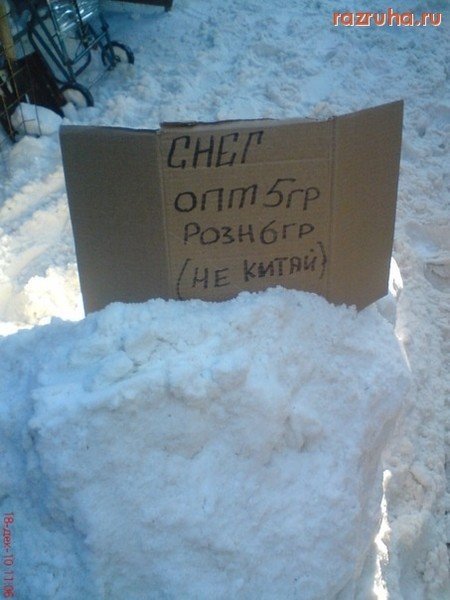 razruha.ru
СНЕГ
ОПТ 5ГР
РОЗН 6ГР
(НЕ КИТАЙ)
18-дек-10 11:06